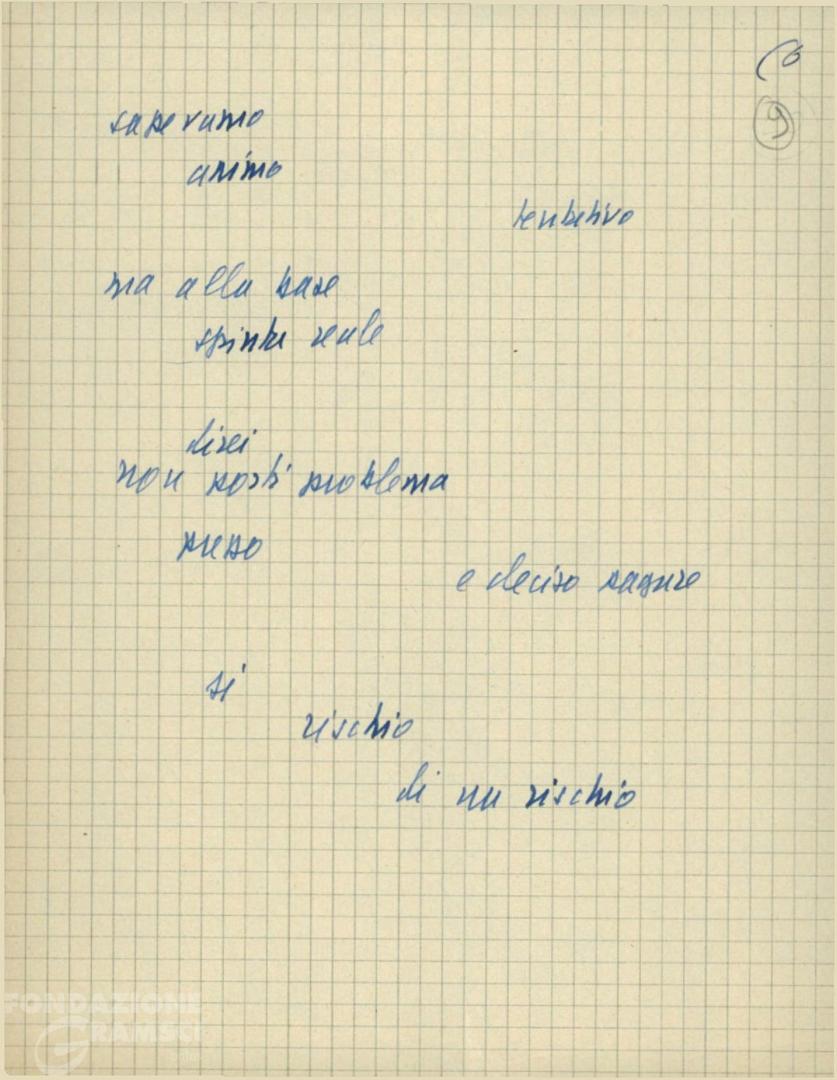 6
9
sapevamo
animo
tentativo
ma alla base
spinta reale
direi
non posti problema
preso
e deciso pagare
sì
rischio
di un rischio
FONDAZIONE
GRAMSCI